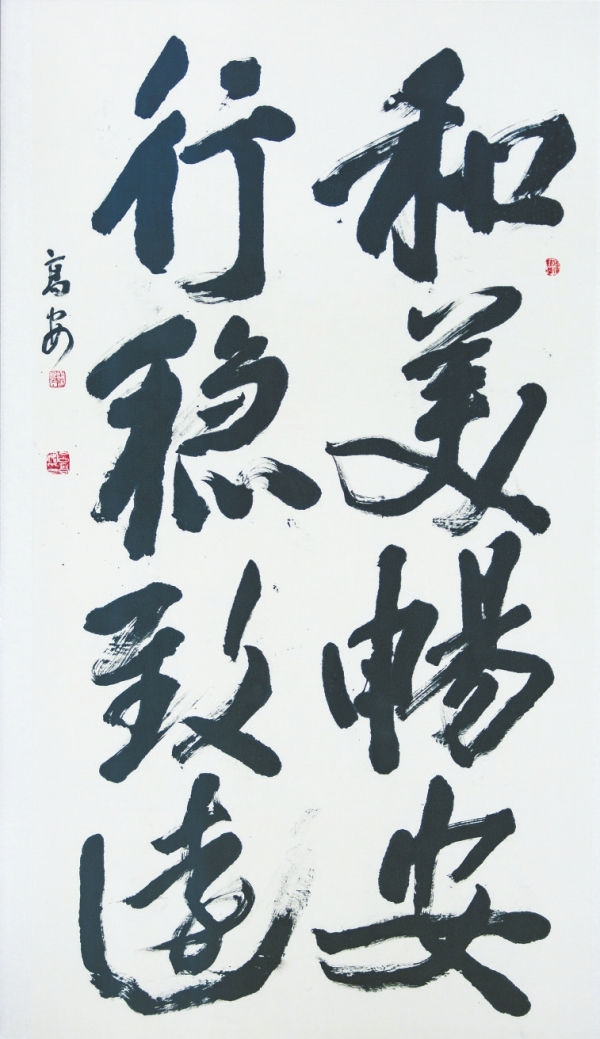 和美暢安
行稳致遠
高安